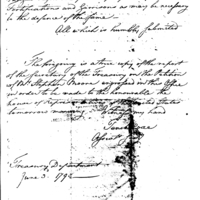 Fortifications and Garrisons as may be necessary
to the defence of the same
All which is humbly submitted
The foregoing is a true copy of the report
of the Secretary of the Treasury on the Petition
of Stephen engrossed in this Office
in order to be made to the honourable the
house of Representatives of the United States
tomorrow morning. Witness my hand
Tench Coxe
Treasury Department
June 3. 1792